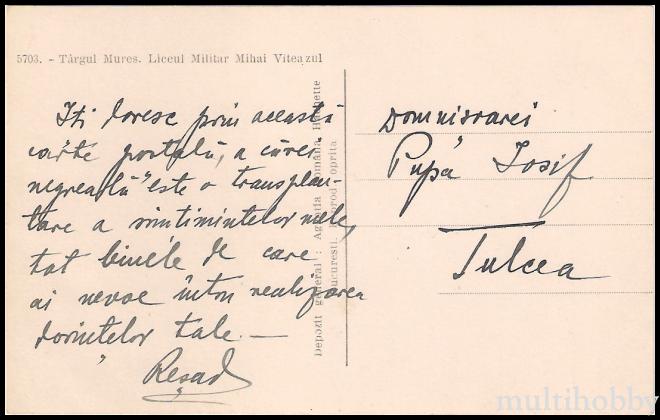 5703. - Târgul Mures. Liceul Militar Mihai Viteazul
Iti doresc prin această
carte postală, a cărei
negreală este o transplan-
tare a simtimintelor mele,
tot binele de care
ai nevoe într'o realizarea
dorintelor tale. —
Reşad
Depozit general : Agentia Română Hachette
Bucuresti. Reprod. oprita
Domnisoarei
Pupă Iosif
Tulcea
multihobby